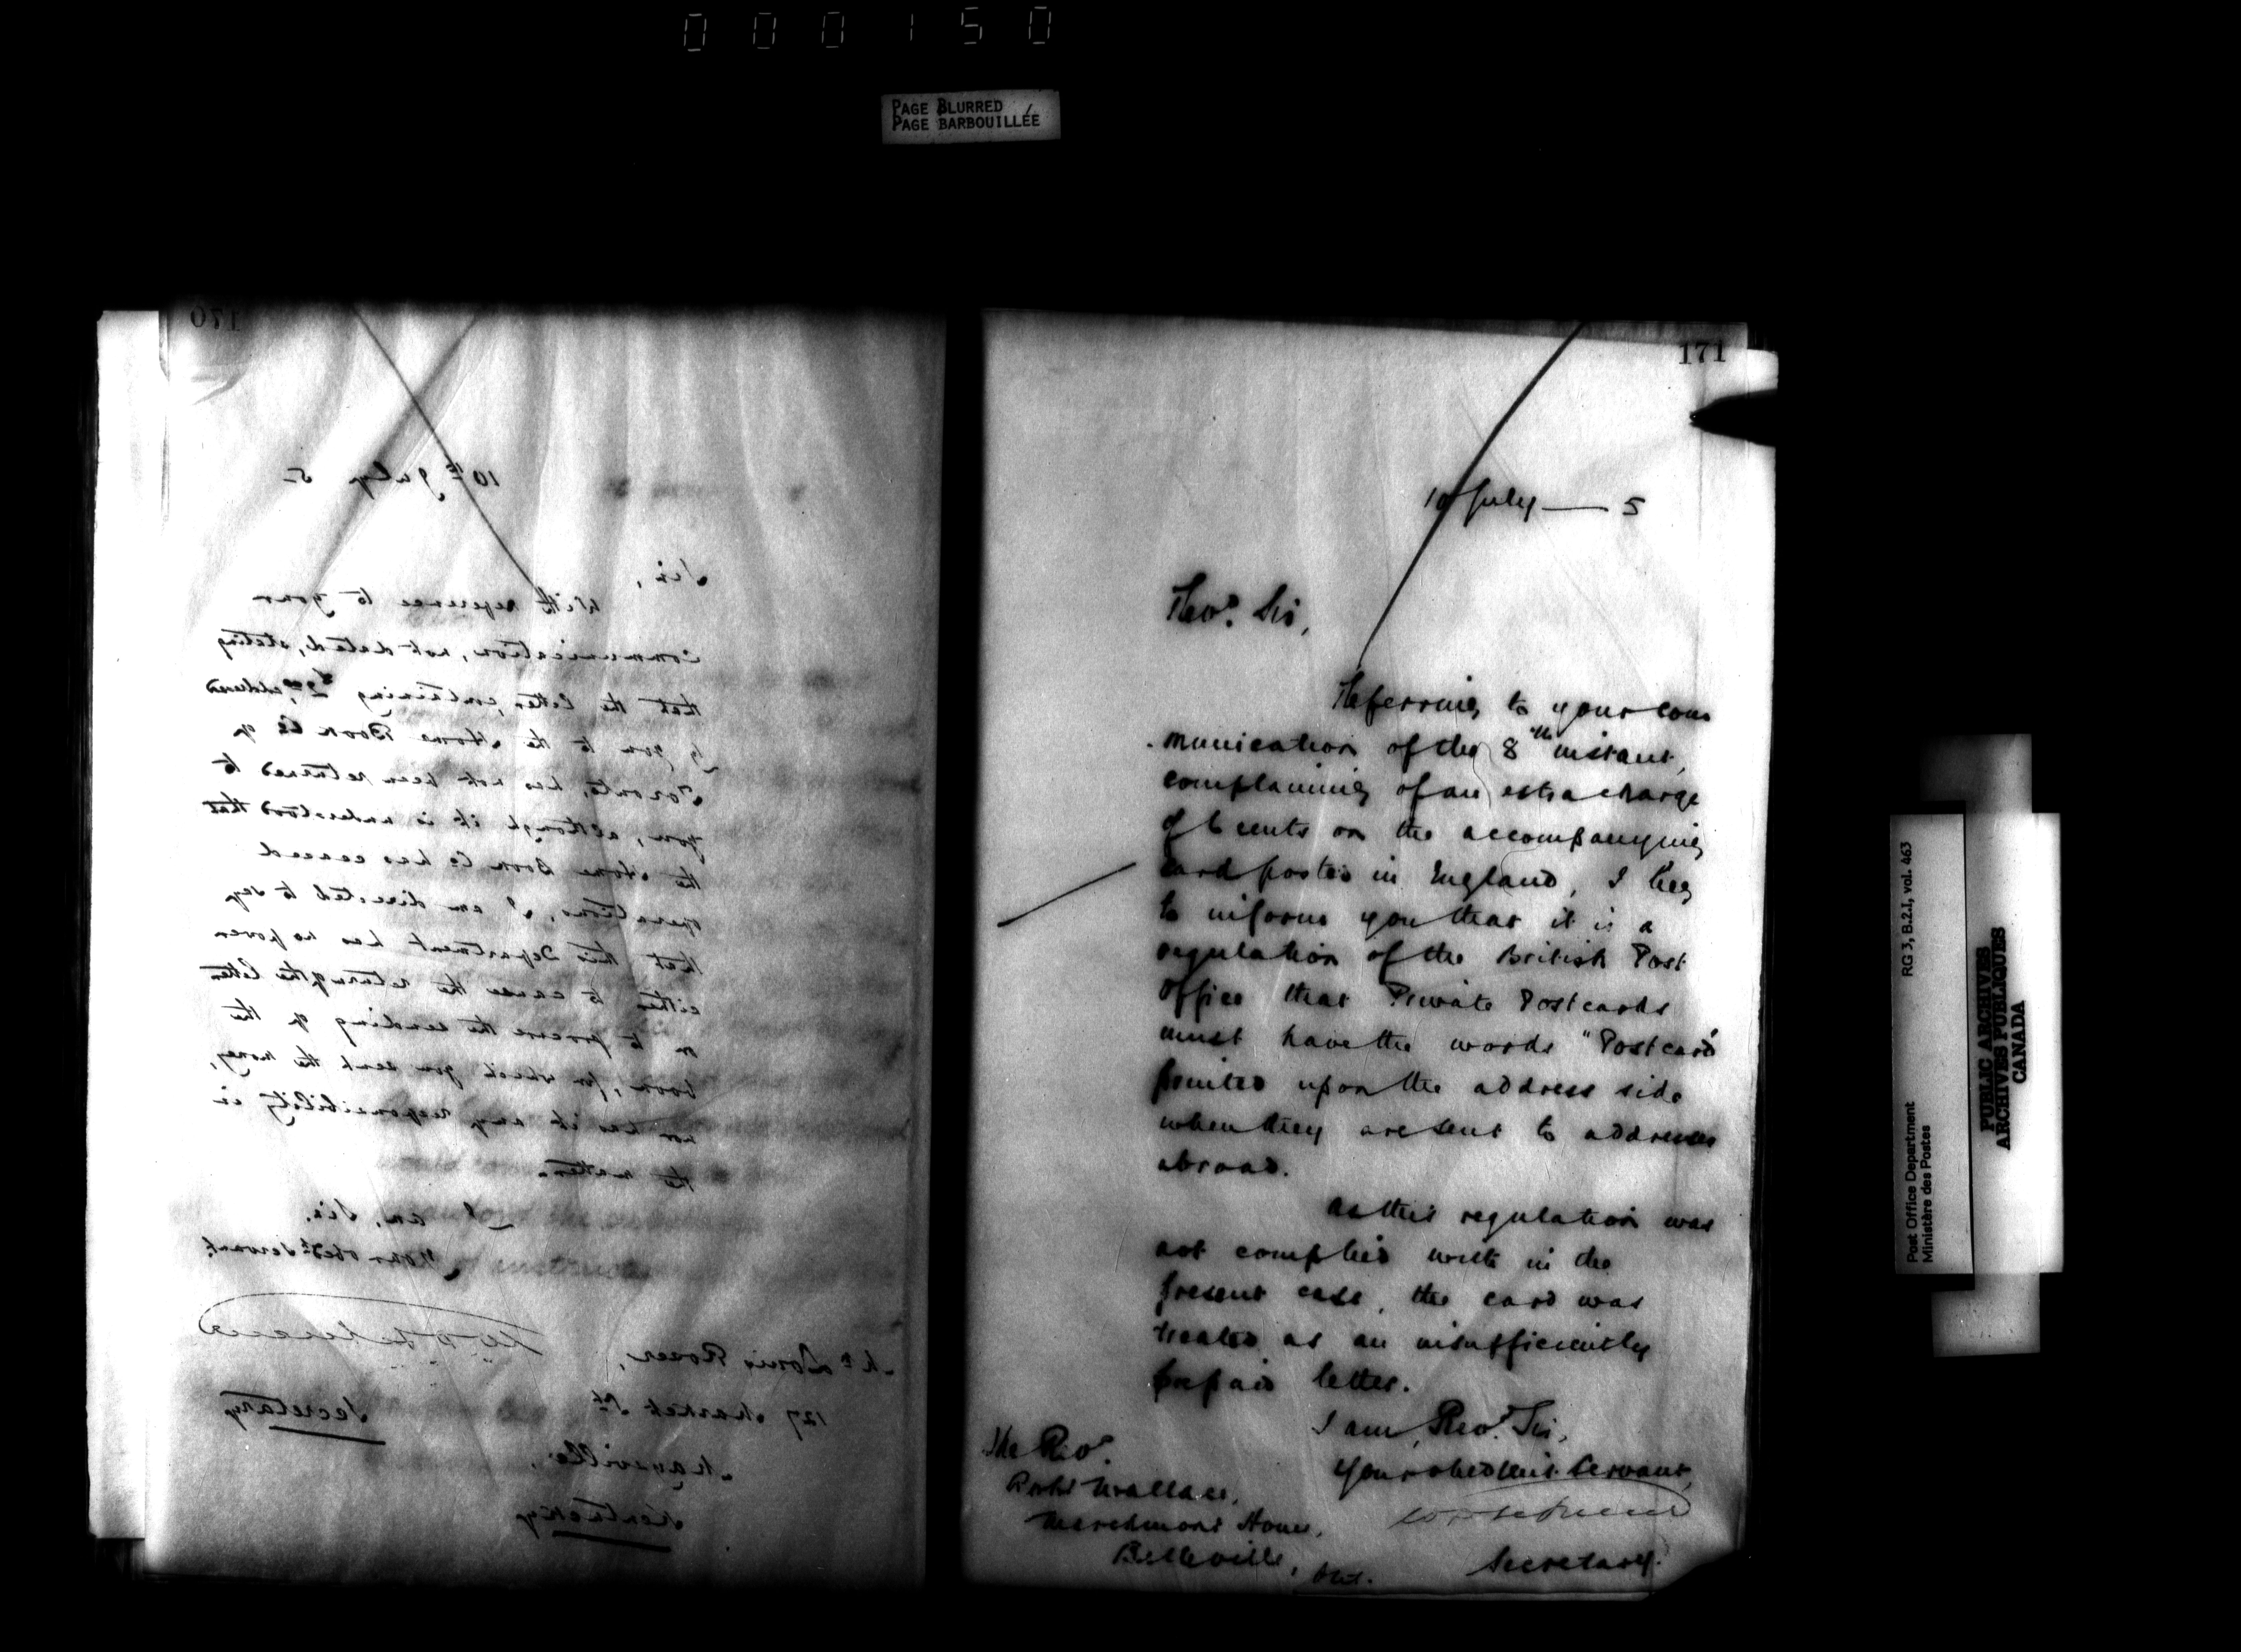 000150
PAGE BLURRED
PAGE BARBOUILLÉE
170
10th July 5
Sir,
With reference to your
communication, not dated, stating
that the letter, containing addressed
by you to the Home Book Co of
Toronto, has not been returned to
you, although it is understood that
the Home Book Co has ceased
operations, I am directed to say
that this Department has no power
either to cause the return of the letter
or to procure the sending of the
book, for which you sent the money,
nor has it any responsibility in
the matter.
I am, Sir,
Your obedt servant.
Secretary
Mr Louis
127 Market St
Maysville,
Kentucky
171
10 July — 5
Revd. Sir,
Referring to your com
munication of the 8th instant,
complaining of an extra charge
of 6 cents on the accompanying
card posted in England, I beg
to inform you that it is a
regulation of the British Post
Office that Private Postcards
must have the words "Postcard"
printed upon the address side
when they are sent to addresses
abroad.
As this regulation was
not complied with in the
present case, the card was
treated as an insufficiently
prepaid letter.
I am, Revd. Sir,
Your obedient Servant,
Secretary.
The Revd
Robt Wallace,
House,
Belleville, Ont.
Post Office Department
Ministère des Postes
RG 3, B.2.I, vol. 463
PUBLIC ARCHIVES
ARCHIVES PUBLIQUES
CANADA